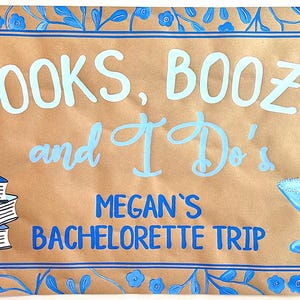 OOKS, BOOZ
and I Do's
MEGAN'S
BACHELORETTE TRIP